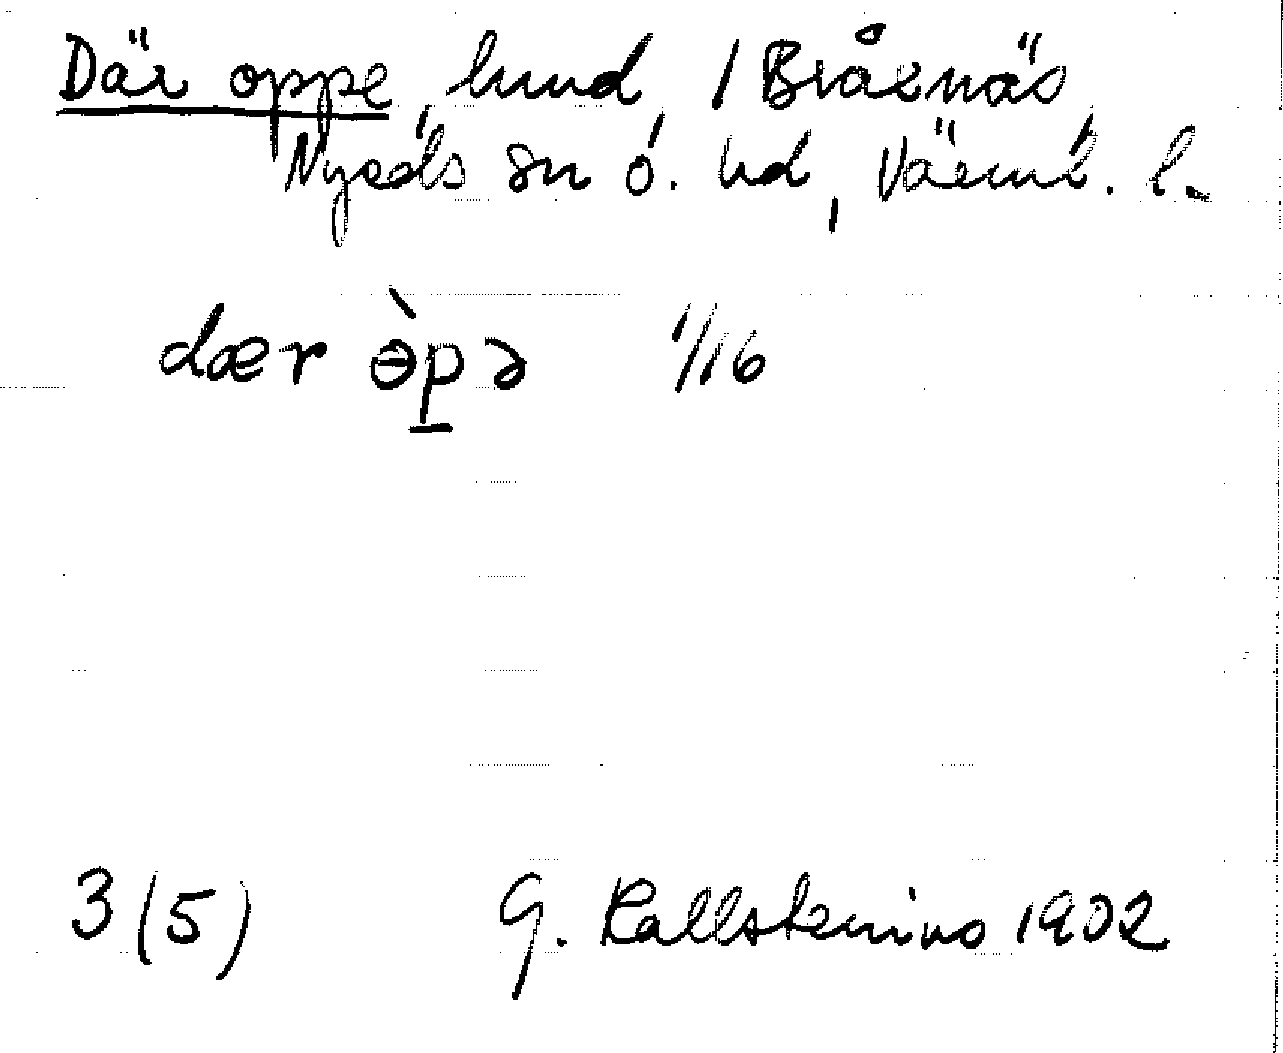 Där oppe, hmd, 1 Bråtnäs,
Nyeds sn Ö. hd, Värml. l.
dær ɵ̀pə 1/16
3 (5) G. Kallstenius 1902